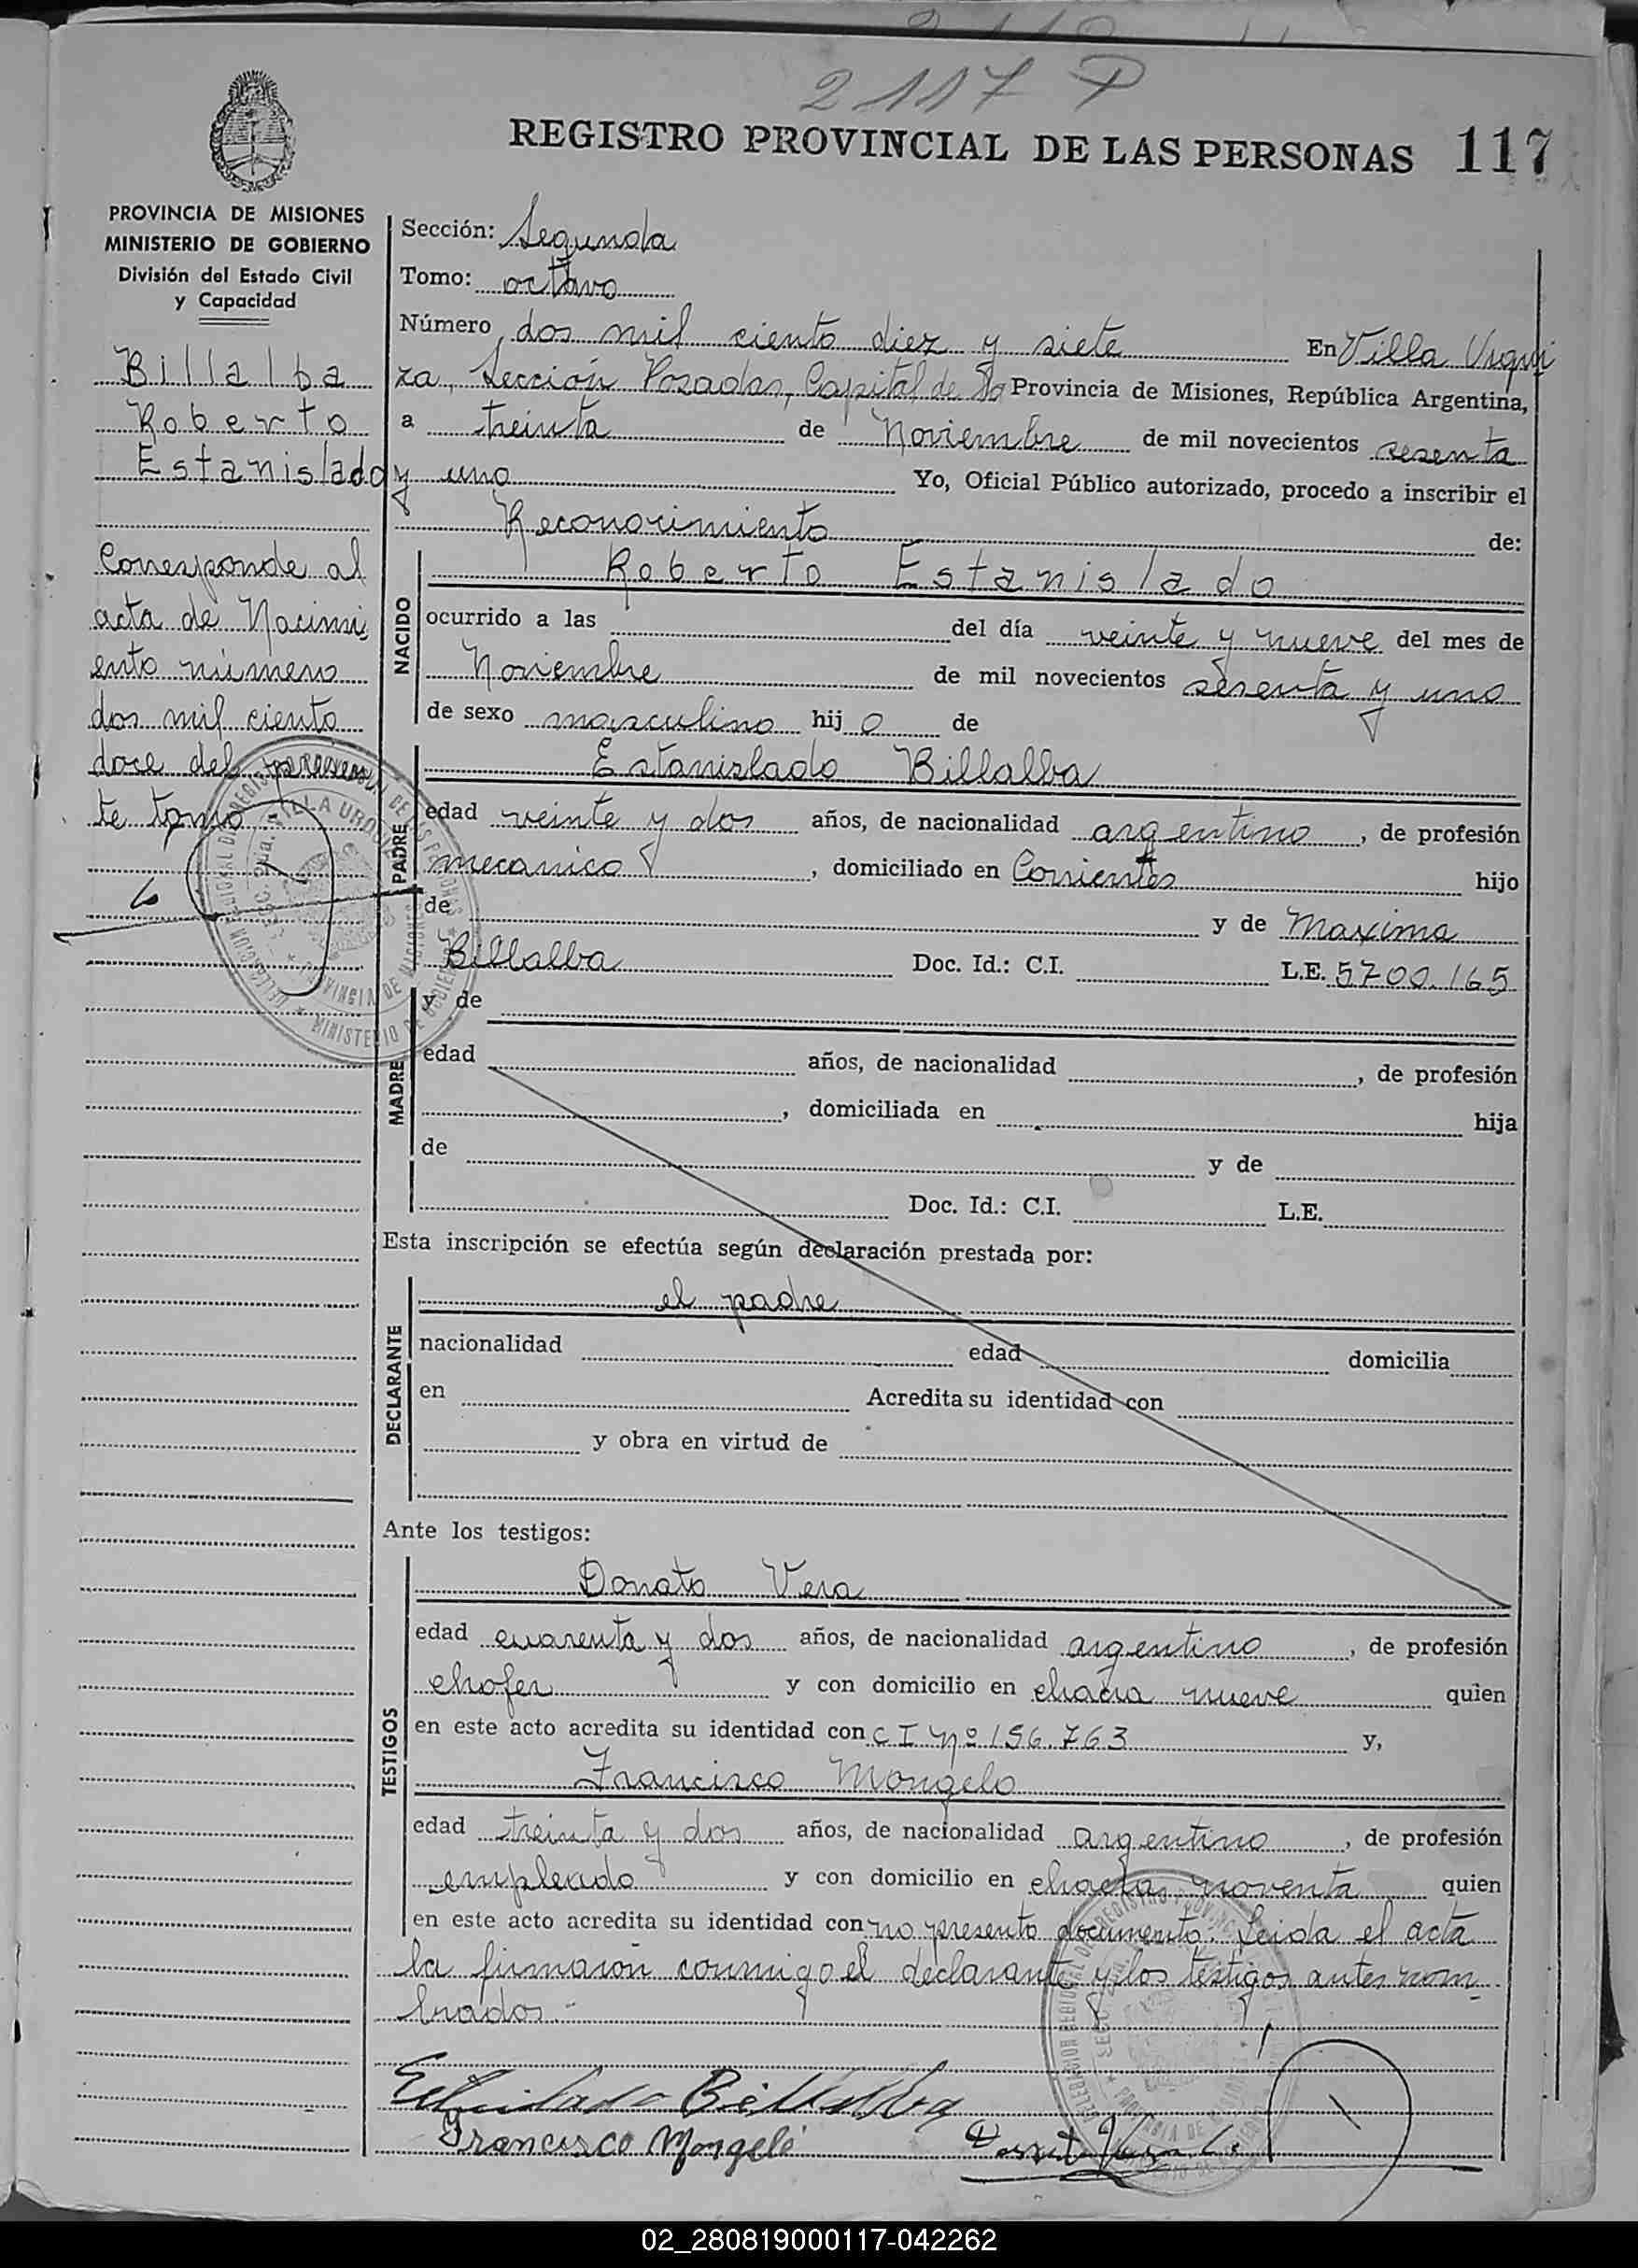 2117 P
REGISTRO PROVINCIAL DE LAS PERSONAS 117
PROVINCIA DE MISIONES
MINISTERIO DE GOBIERNO
División del Estado Civil
y Capacidad
Billalba
Roberto
Estanislado
Corresponde al
acta de Nacimi
ento número
dos mil ciento
doce del presen
te tomo
Sección: Segunda
Tomo: octavo
Número dos mil ciento diez y siete En Villa Urqui
za, Sección Posadas, Capital de la Provincia de Misiones, República Argentina,
a treinta de Noviembre de mil novecientos sesenta
y uno Yo, Oficial Público autorizado, procedo a inscribir el
Reconocimiento de:
NACIDO
Roberto Estanislado
ocurrido a las del día veinte y nueve del mes de
Noviembre de mil novecientos sesenta y uno
de sexo masculino hijo de
PADRE
Estanislado Billalba
edad veinte y dos años, de nacionalidad argentino, de profesión
mecanico, domiciliado en Corrientes hijo
de y de Maxima
Billalba Doc. Id.: C.I. L.E. 5700.165
y de
MADRE
edad años, de nacionalidad , de profesión
, domiciliada en hija
de y de
Doc. Id.: C.I. L.E.
Esta inscripción se efectúa según declaración prestada por:
DECLARANTE
el padre
nacionalidad edad domicilia
en Acredita su identidad con
y obra en virtud de
Ante los testigos:
TESTIGOS
Donato Vera
edad cuarenta y dos años, de nacionalidad argentino, de profesión
chofer y con domicilio en chacra nueve quien
en este acto acredita su identidad con C I Nº 156.763 y,
Francisco Mongelo
edad treinta y dos años, de nacionalidad argentino, de profesión
empleado y con domicilio en chacra noventa quien
en este acto acredita su identidad con no presento documento. Leida el acta
la firmaron conmigo el declarante y los testigos antes nom
brados.-
Billalba
Francisco Mongeló
02_280819000117-042262